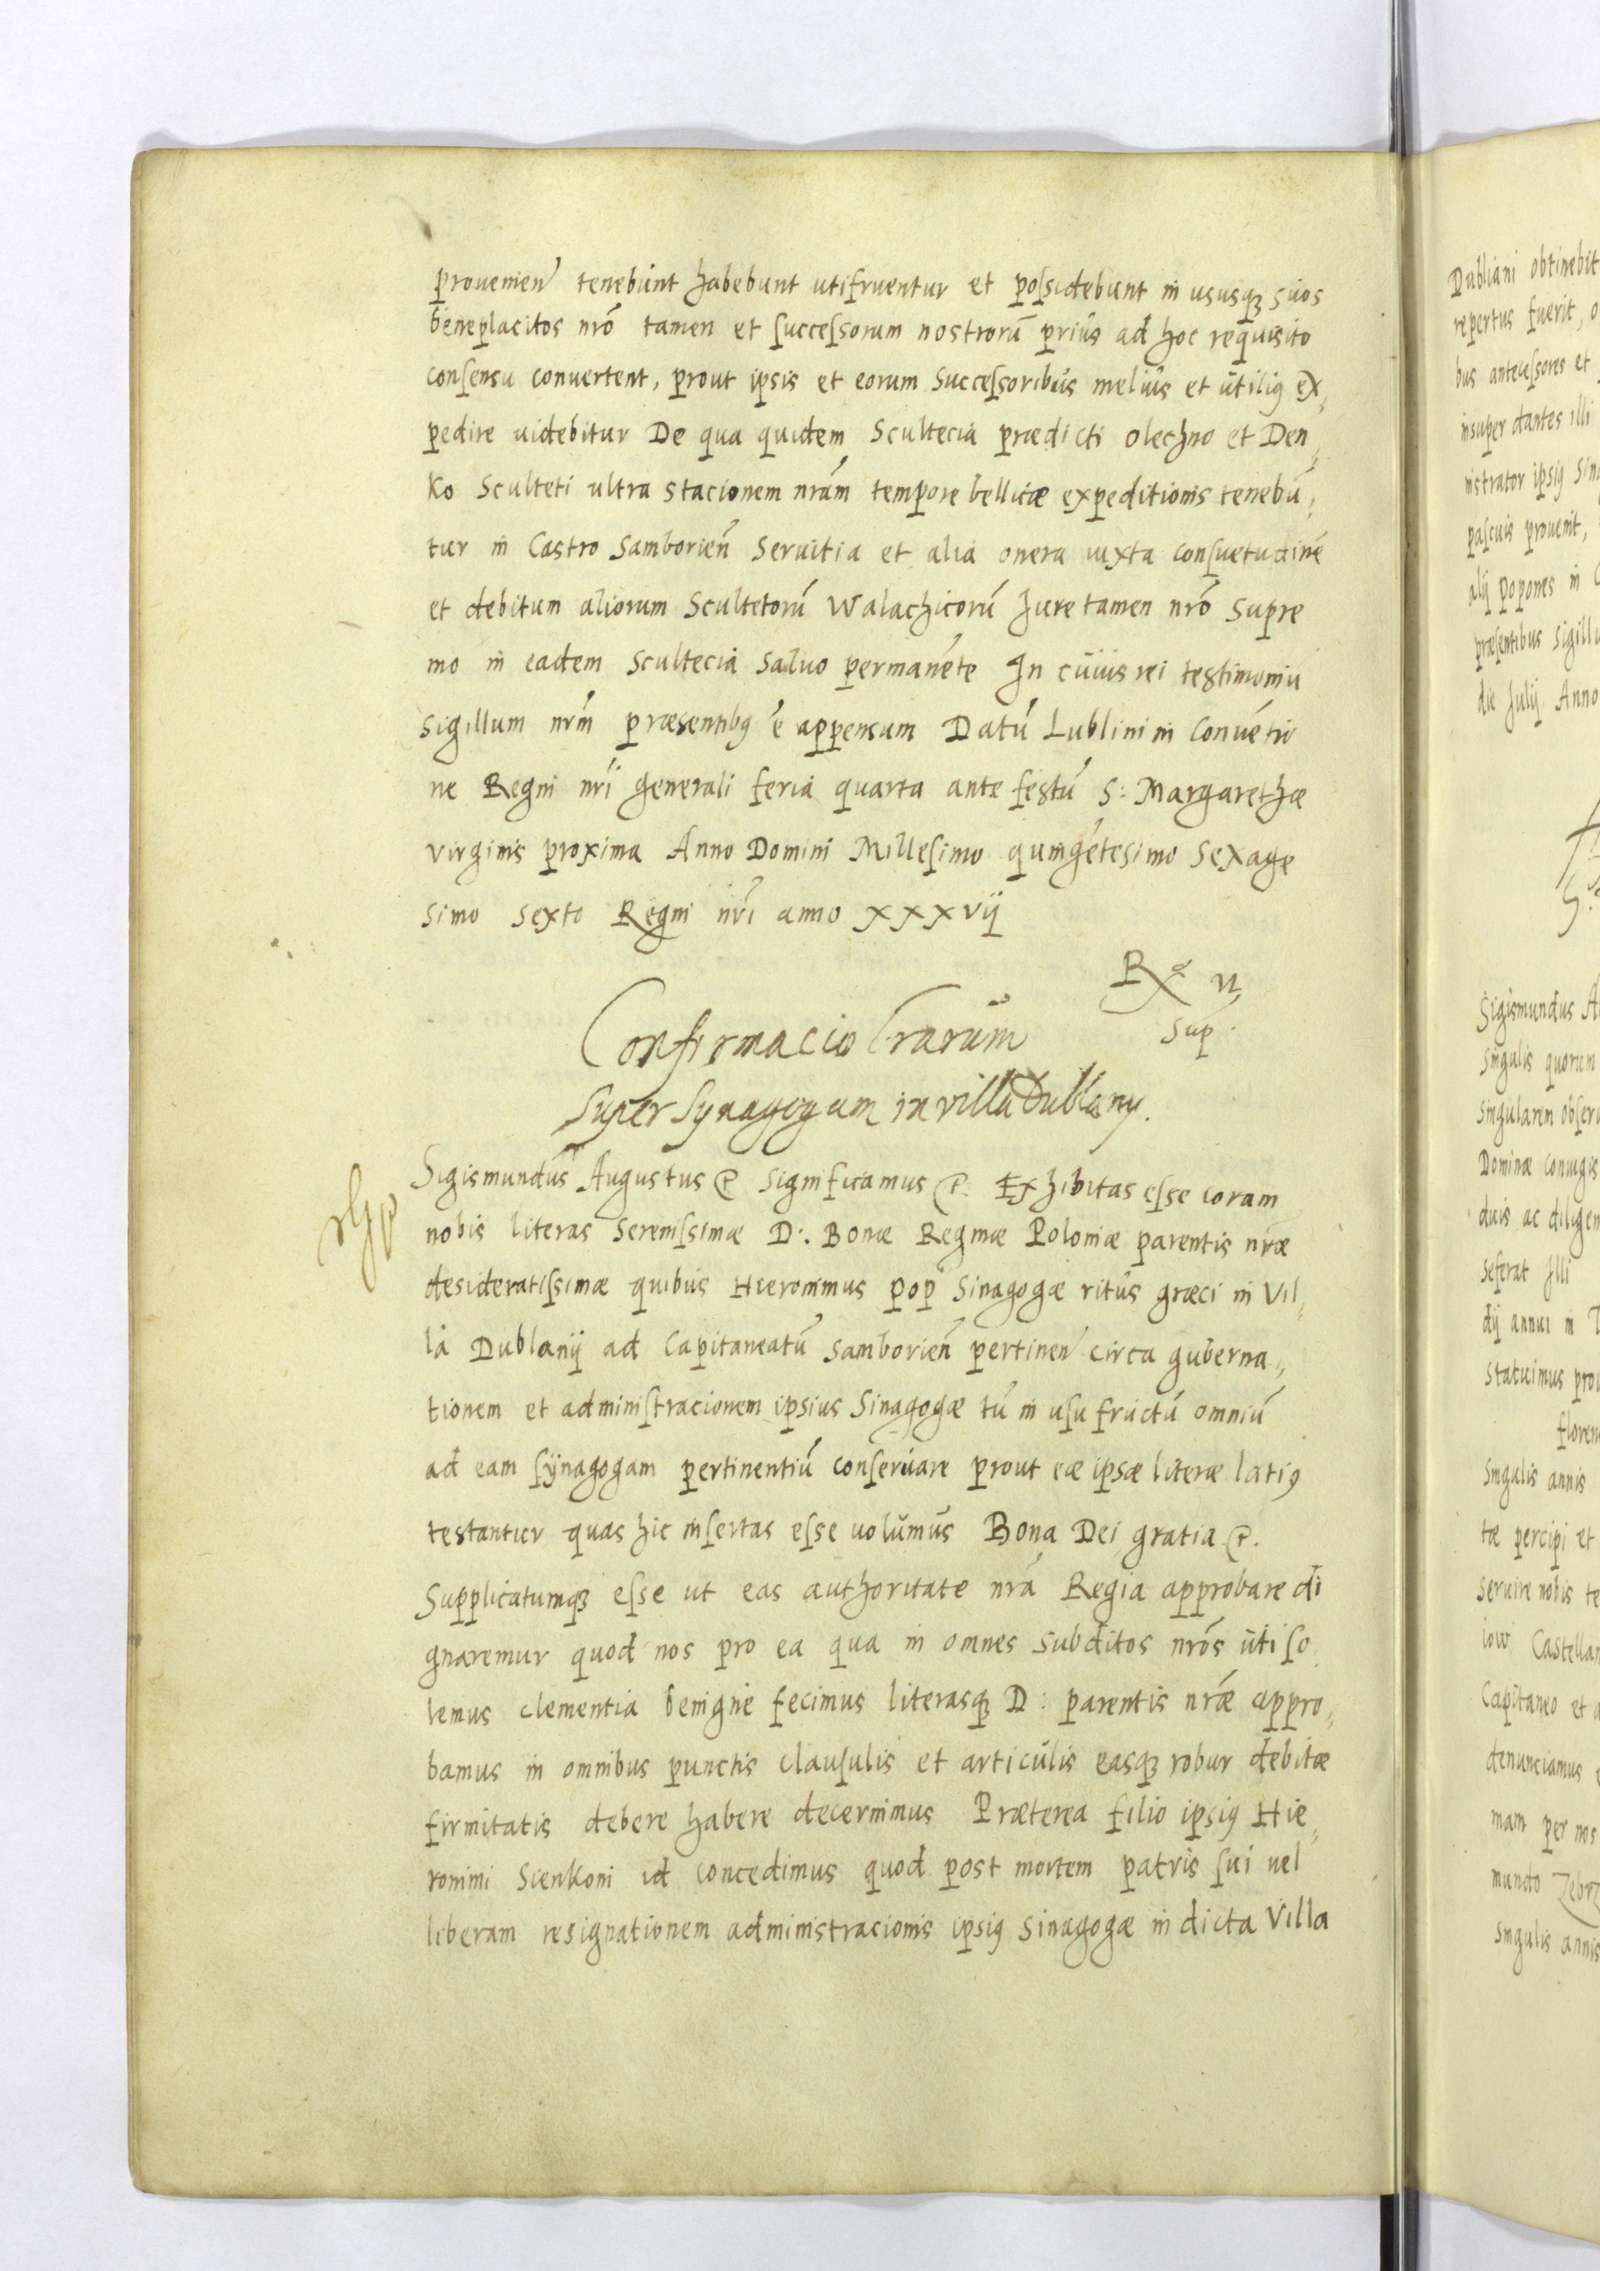 prouenien̄ tenebunt habebunt utifruentur et poſsidebunt in ususq̢ suos
beneplacitos nrō tamen et ſucceſsorum nostrorū prius ad hoc requisito
conſensu conuertent, prout ipsis et eorum Succeſsoribus melius et utiliꝰ ex„
pedire uidebitur De qua quidem Scultecia prædicti Olechno et Den„
ko Sculteti ultra stacionem nrām tempore bellicæ expeditionis tenebū„
tur in Castro Samborien̄ Seruitia et alia onera iuxta conſuetudinē
et debitum aliorum Scultetorū Walachicorū Jure tamen nrō Supre
mo in eadem Scultecia Saluo permanēte In cuius rei testimoniū
sigillum nrm̄ præsentibꝰ ē appensum Datū Lublini in Conuētio
ne Regni nrī generali feria quarta ante festū S: Margarethæ
virginis proxima Anno Domini Milleſimo quingētesimo Sexage
simo sexto Regni nrī anno xxxvij
Sup.
Confirmacio lrarūm
super synagogam in villa Dublany.
Sigismundus Augustus &c Significamus &c. Exhibitas eſse coram
nobis literas Sereniſsimæ D:. Bonæ Reginæ Poloniæ parentis nrǣ
desideratiſsimæ quibus Hieronimus pop Sinagogæ ritus græci in Vil„
la Dublanij ad Capitaneatū Samborien̄ pertinen̄ circa guberna„
tionem et adminiſtracionem ipsius Sinagogæ tū in uſu fructū omniū
ad eam ſynagogam pertinentiū conſeruare prout eæ ipsæ literæ latiꝰ
testantur quas hic inſertas eſse uolumus Bona Dei gratia &c.
Supplicatumq̢ eſse ut eas authoritate nrā Regia approbare di
gnaremur quod nos pro ea qua in omnes subditos nrōs uti ſo
lemus clementia benigne fecimus literasq̢ D: parentis nrǣ appro„
bamus in omnibus punctis clauſulis et articulis easq̢ robur debitæ
firmitatis debere habere decernimus Præterea filio ipsiꝰ Hie„
ronimi Sienkoni id concedimus quod post mortem patris ſui uel
liberam resignationem administracionis ipsiꝰ Sinagogæ in dicta Villa
Dubliani obtinebit
repertus fuerit,
bus anteceſsores et
insuper dantes illi
nistrator ipsiꝰ
paſcuis prouenit,
alij Popones in
præsentibus sigillu
die Julij Anno
Sigismundus
singulis quorum
Singularem
Dominæ coniugis
duis ac
seferat Illi
dij annui in
Statuimus
Singulis annis
tæ percipi et
seruire nobis
Capitaneo et
denunciamus
mam per nos
mundo
Singulis annis